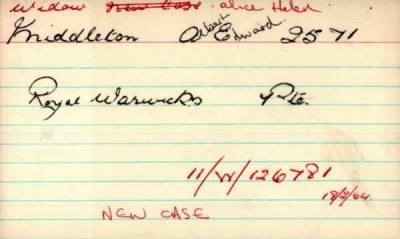 Widow New Case. Alice Helen
Middleton Albert Edward 2571
Royal Warwicks Pte.
11/W/126781
18/8/64
NEW CASE